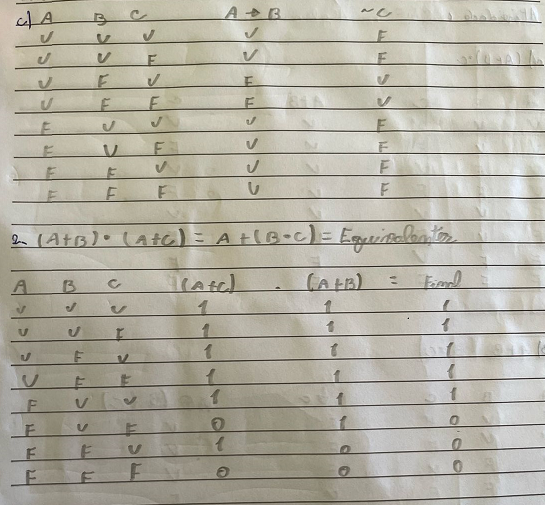 c) A B C A → B ~C
V V V V F
V V F V F
V F V F V
V F F F V
F V V V F
F V F V F
F F V V F
F F F V F
2- (A+B)•(A+C) = A+(B•C) = Equivalentes
A B C (A+C) . (A+B) = Final
V V V 1 1 1
V V F 1 1 1
V F V 1 1 1
V F F 1 1 1
F V V 1 1 1
F V F 0 1 0
F F V 1 0 0
F F F 0 0 0